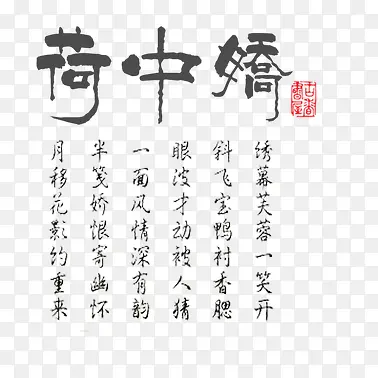 荷中嬌
古香書屋
绣幕芙蓉一笑开
斜飞宝鸭衬香腮
眼波才动被人猜
一面风情深有韵
半笺娇恨寄幽怀
月移花影约重来